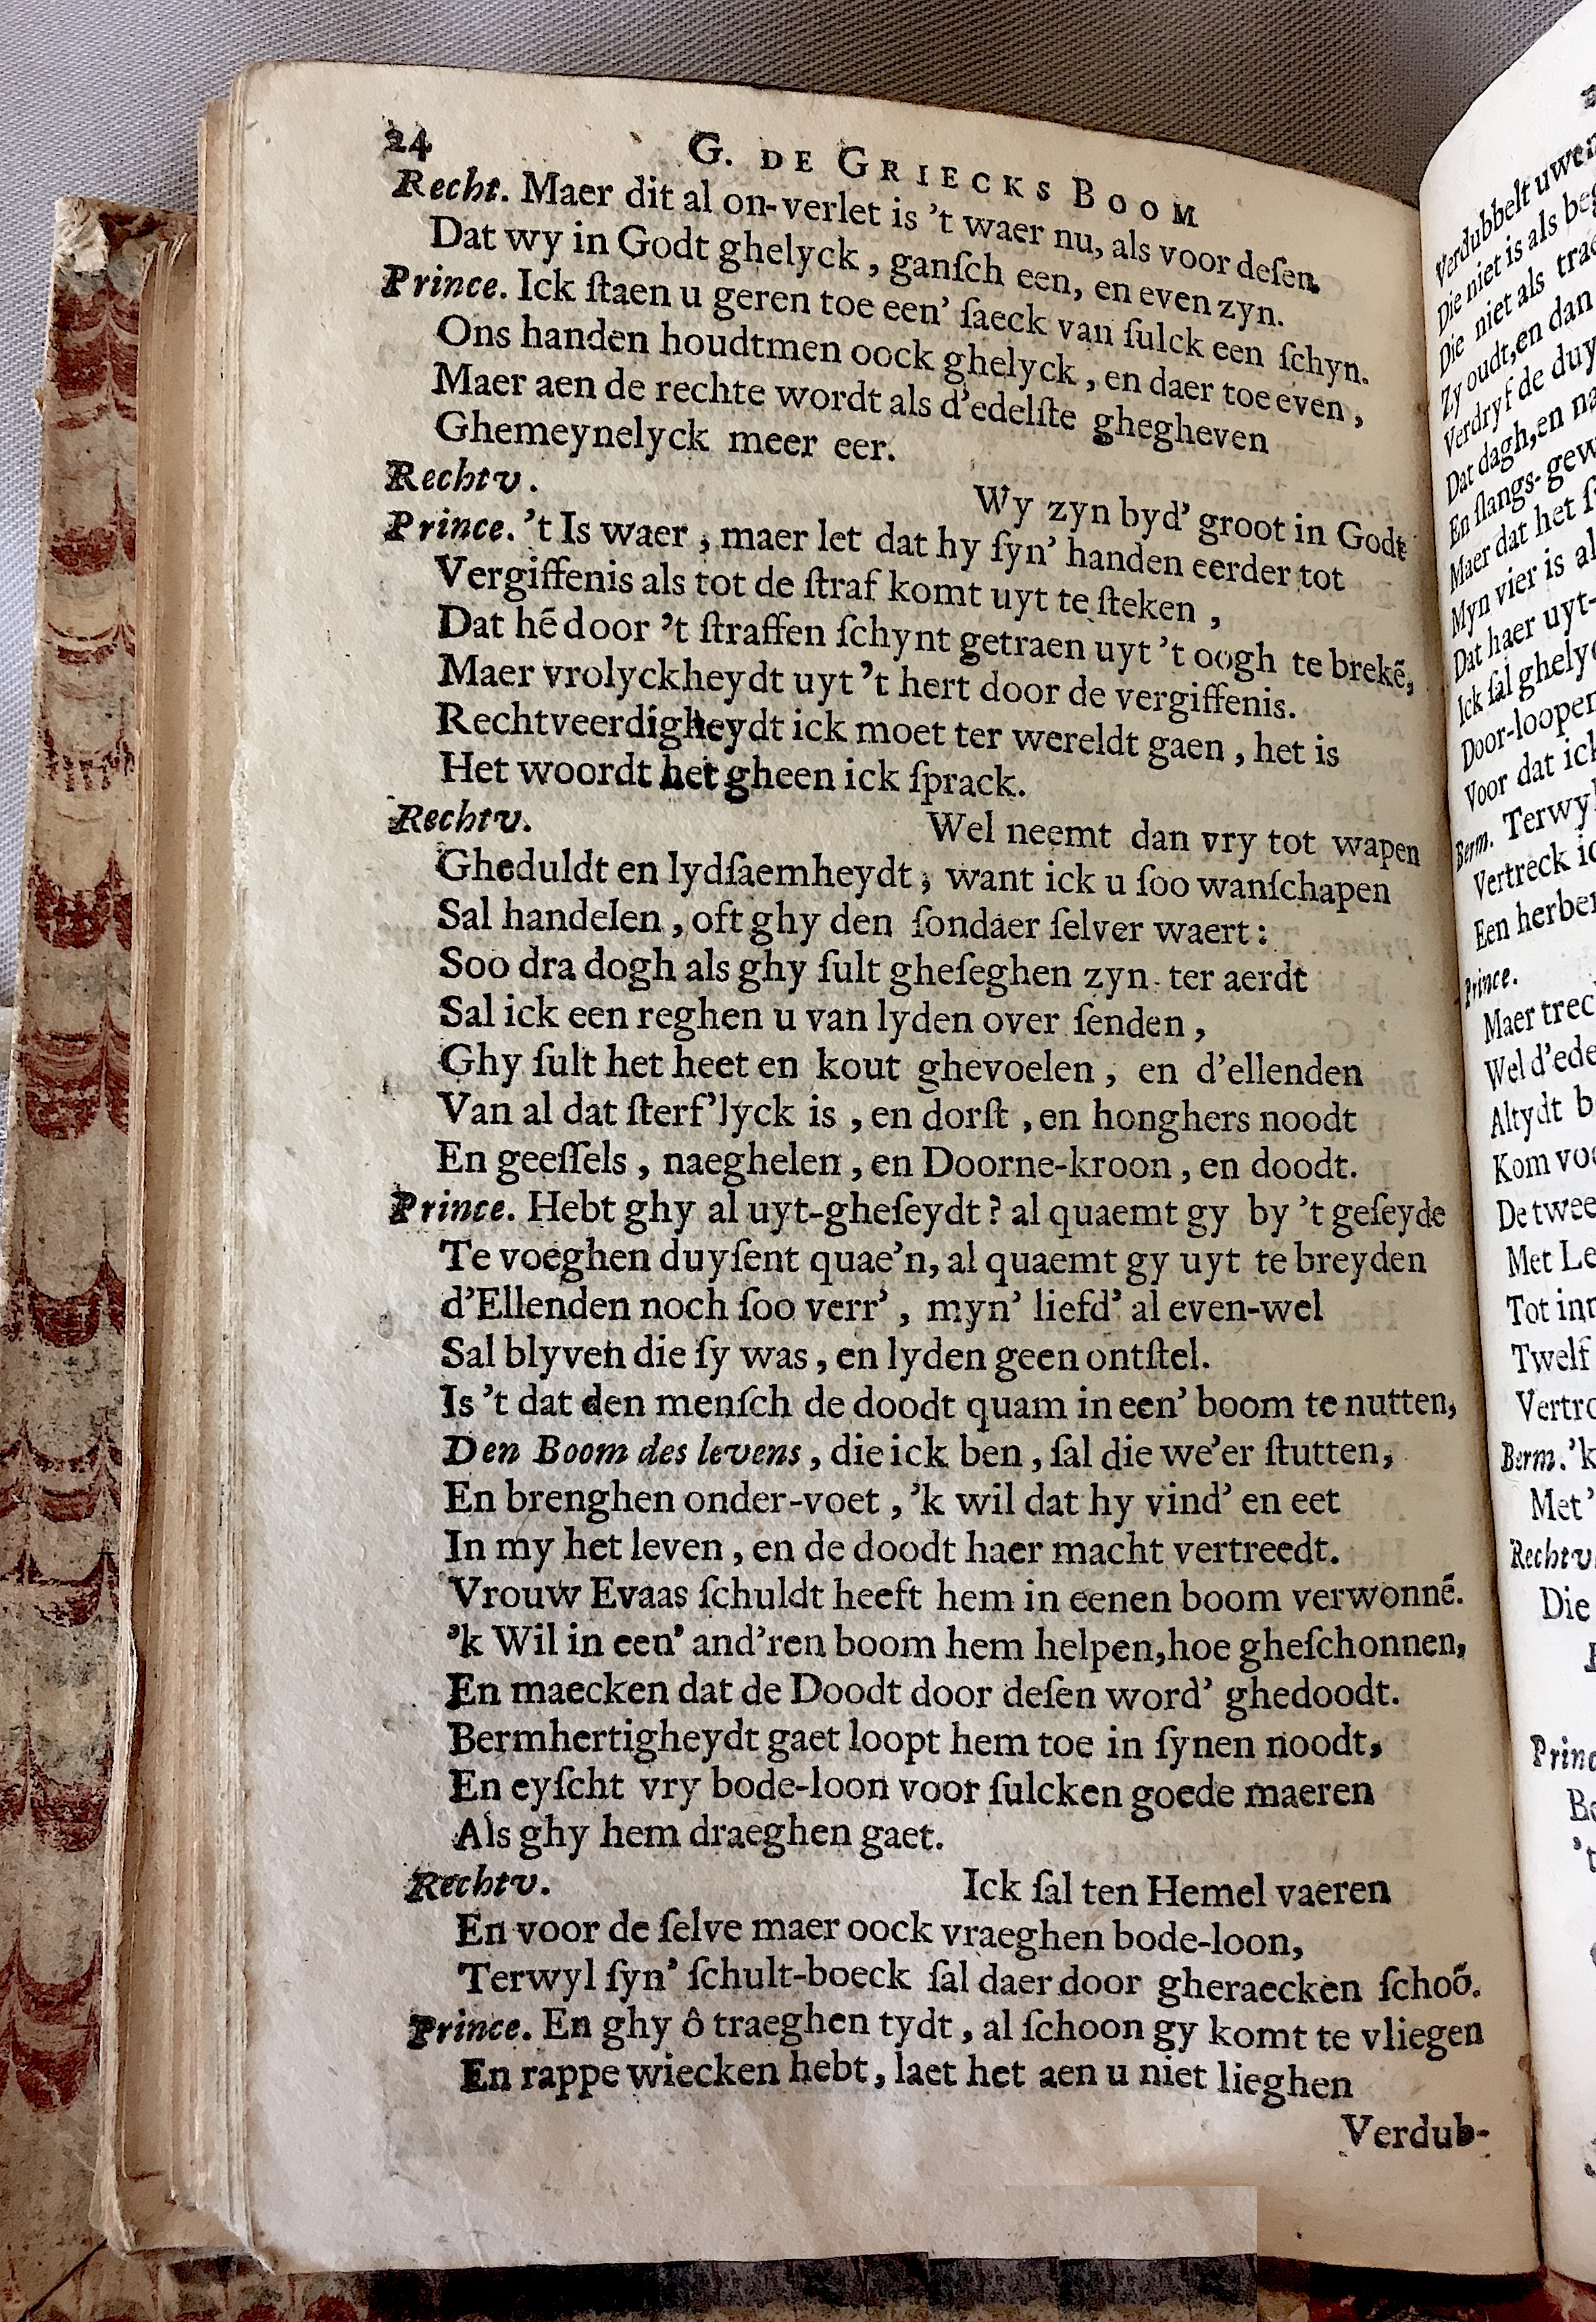 24 G. DE GRIECKS BOOM
Recht. Maer dit al on-verlet is 't waer nu, als voor deſen,
Dat wy in Godt ghelyck, ganſch een, en even zyn.
Prince. Ick ſtaen u geren toe een' ſaeck van ſulck een ſchyn.
Ons handen houdtmen oock ghelyck, en daer toe even,
Maer aen de rechte wordt als d'edelſte ghegheven
Ghemeynelyck meer eer.
Rechtv. Wy zyn byd' groot in Godt
Prince. 't Is waer, maer let dat hy ſyn' handen eerder tot
Vergiffenis als tot de ſtraf komt uyt te ſteken,
Dat hē door 't ſtraffen ſchynt getraen uyt 't oogh te brekē,
Maer vrolyckheydt uyt 't hert door de vergiffenis.
Rechtveerdigheydt ick moet ter wereldt gaen, het is
Het woordt het gheen ick ſprack.
Rechtv. Wel neemt dan vry tot wapen
Gheduldt en lydſaemheydt; want ick u ſoo wanſchapen
Sal handelen, oft ghy den ſondaer ſelver waert:
Soo dra dogh als ghy ſult gheſeghen zyn ter aerdt
Sal ick een reghen u van lyden over ſenden,
Ghy ſult het heet en kout ghevoelen, en d'ellenden
Van al dat ſterf'lyck is, en dorſt, en honghers noodt
En geeſſels, naeghelen, en Doorne-kroon, en doodt.
Prince. Hebt ghy al uyt-gheſeydt? al quaemt gy by 't geſeyde
Te voeghen duyſent quae'n, al quaemt gy uyt te breyden
d'Ellenden noch ſoo verr', myn' liefd' al even-wel
Sal blyven die ſy was, en lyden geen ontſtel.
Is 't dat den menſch de doodt quam in een' boom te nutten,
Den Boom des levens, die ick ben, ſal die we'er ſtutten,
En brenghen onder-voet, 'k wil dat hy vind' en eet
In my het leven, en de doodt haer macht vertreedt.
Vrouw Evaas ſchuldt heeft hem in eenen boom verwonnē.
'k Wil in een' and'ren boom hem helpen, hoe gheſchonnen,
En maecken dat de Doodt door deſen word' ghedoodt.
Bermhertigheydt gaet loopt hem toe in ſynen noodt,
En eyſcht vry bode-loon voor ſulcken goede maeren
Als ghy hem draeghen gaet.
Rechtv. Ick ſal ten Hemel vaeren
En voor de ſelve maer oock vraeghen bode-loon,
Terwyl ſyn' ſchult-boeck ſal daer door gheraecken ſchoō.
Prince. En ghy ô traeghen tydt, al ſchoon gy komt te vliegen
En rappe wiecken hebt, laet het aen u niet lieghen
Verdub-
Verdubbelt uwen
Die niet is als
Die niet als
Zy oudt, en dan
Verdryf de
Dat dagh, en
En ſlangs-
Maer dat het
Myn vier is
Dat haer uyt-
Ick ſal
Door-loopen
Voor dat ick
Berm. Terwyl
Vertreck
Een
Prince.
Maer
Wel
Altydt
Kom
De twee
Met
Tot
Twelf
Berm. 'k
Met
Rechtv.
Die